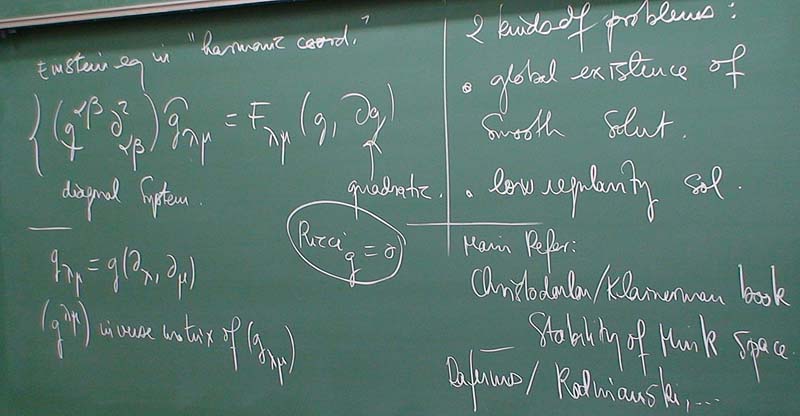 Einstein eq in "harmonic coord."
{(g^{αβ} ∂²_{αβ}) g_{λμ} = F_{λμ} (g, ∂g)
diagonal System.
quadratic.
g_{λμ} = g(∂_λ, ∂_μ)
(g^{λμ}) inverse matrix of (g_{λμ})
Ricci_g = 0
2 kinds of problems:
• global existence of
smooth solut.
• low regularity sol.
Main Refer:
Christodoulou/Klainerman book
Stability of Mink Space.
Dafermos/Rodnianski,...